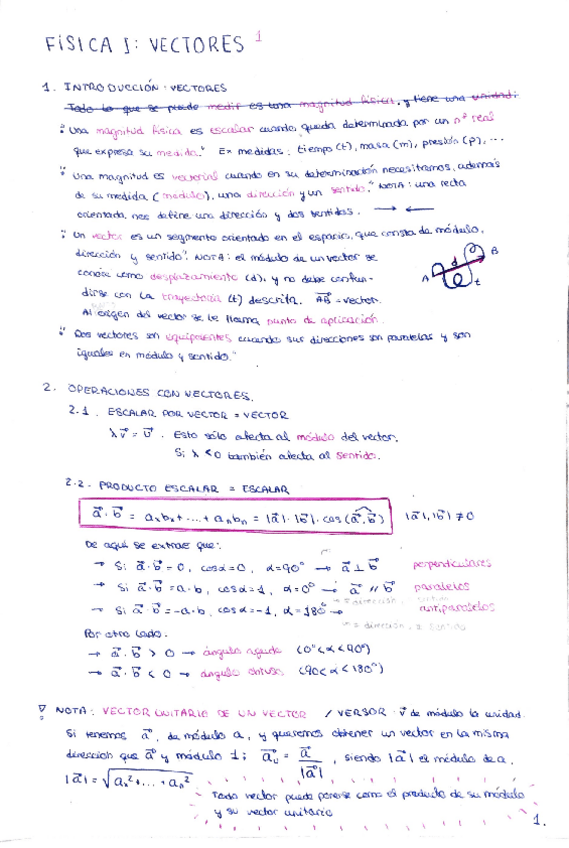 FÍSICA I: VECTORES 1
1. INTRODUCCIÓN: VECTORES
Todo lo que se puede medir es una magnitud física, y tiene una unidad.
"Una magnitud física es escalar cuando queda determinada por un nº real
que expresa su medida." Ex medidas: tiempo (t), masa (m), presión (p), ...
"Una magnitud es vectorial cuando en su determinación necesitamos, además
de su medida, (módulo), una dirección y un sentido." NOTA: una recta
orientada, nos define una dirección y dos sentidos. → ←
"Un vector es un segmento orientado en el espacio, que consta de módulo,
dirección y sentido". NOTA: el módulo de un vector se
conoce como desplazamiento (d), y no debe confun-
dirse con la trayectoria (t) descrita. AB = vector.
A d B t
Al origen del vector se le llama punto de aplicación.
"Dos vectores son equipolentes cuando sus direcciones son paralelas y son
iguales en módulo y sentido."
2. OPERACIONES CON VECTORES.
2.1. ESCALAR POR VECTOR = VECTOR
λv⃗ = U⃗. Esto sólo afecta al módulo del vector.
Si λ<0 también afecta al sentido.
2.2. PRODUCTO ESCALAR = ESCALAR
a⃗·b⃗ = aₓbₓ+...+aₙbₙ = |a⃗|·|b⃗|·cos(a⃗,b⃗) |a⃗|,|b⃗| ≠ 0
De aquí se extrae que:
→ Si a⃗·b⃗ = 0, cosα=0, α=90° → a⃗ ⊥ b⃗ perpendiculares
→ Si a⃗·b⃗ = a·b, cosα=1, α=0° → a⃗ // b⃗ paralelos
= dirección, sentido
→ Si a⃗·b⃗ = -a·b, cosα=-1, α=180° → antiparalelos
= dirección, ≠ sentido
Por otro lado.
→ a⃗·b⃗ > 0 → ángulo agudo (0°<α<90°)
→ a⃗·b⃗ < 0 → ángulo obtuso (90<α<180°)
NOTA: VECTOR UNITARIO DE UN VECTOR / VERSOR · v⃗ de módulo la unidad.
Si tenemos a⃗, de módulo a, y queremos obtener un vector en la misma
dirección que a⃗ y módulo 1; a⃗ᵤ = a⃗/|a⃗|, siendo |a⃗| el módulo de a,
|a⃗| = √(aₓ²+...+aₙ²)
Todo vector puede ponerse como el producto de su módulo
y su vector unitario
1.